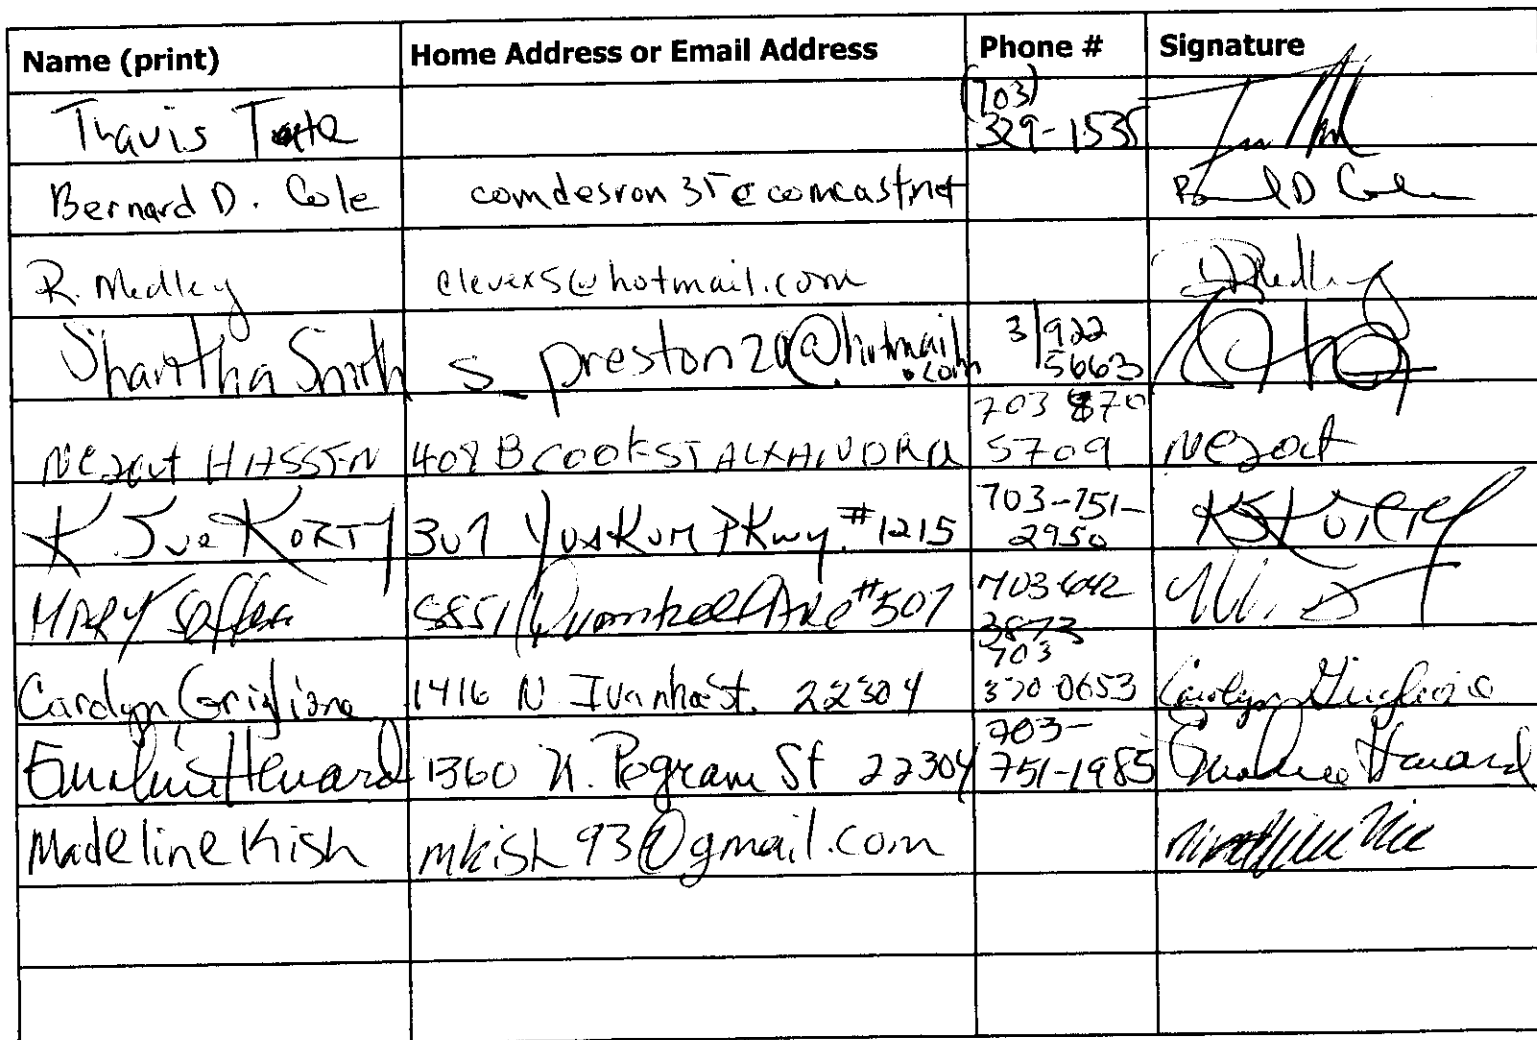 Name (print) Home Address or Email Address Phone # Signature
Travis Tate (703) 329-1535
Bernard D. Cole comdesron35@comcast.net Bernard D Cole
R. Medley clevex5@hotmail.com R Medley
Shantha Smith s_preston20@hotmail.com 3/922 5663
Nezaut HASSEN 408 B COOK ST 703 870 5709 Nezaut
K Sue KORTY 307 Yoakum PKwy. #1215 703-751-2950 KSKorty
MARY #507 703-642 3873
Carolyn Griglione 1416 N Ivanhoe St. 22304 703 370-0653 Carolyn Griglione
Howard 1360 N. Pegram St 22304 703-751-1985 Howard
Madeline Kish mkish93@gmail.com